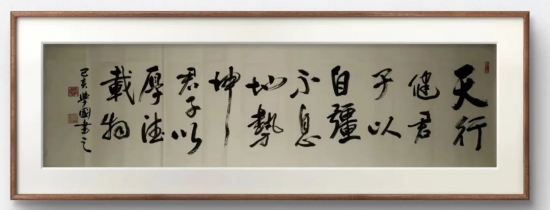 天行
健君
子以
自彊
不息
地勢
坤
君子以
厚德
載物
己亥國書之